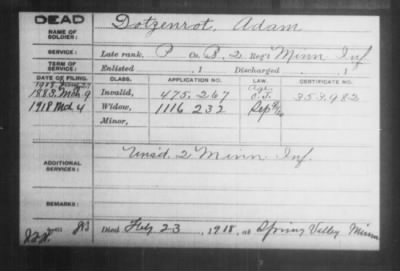 DEAD
NAME OF SOLDIER: Dotzenrot, Adam
SERVICE: Late rank, P Co. B, 2 Reg't Minn Inf
TERM OF SERVICE: Enlisted , 1 Discharged , 1
DATE OF FILING. CLASS. APPLICATION NO. LAW. CERTIFICATE NO.
1883, Mch 9 Invalid, 475,267 353,982
1918 Mch 4 Widow, 1116 232
Minor,
ADDITIONAL SERVICES: Unas'd. 2 Minn Inf.
REMARKS:
Died Feby 23, 1918, at Spring Valley Minn